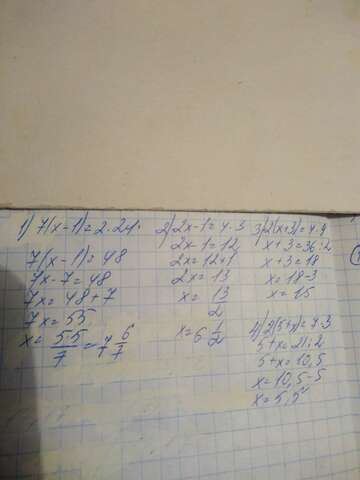 1) 7(x-1)=2.24.
7(x-1)=48
7x-7=48
7x=48+7
7x=55
x=55/7=7 6/7
2) 2x-1=4.3
2x-1=12
2x=12+1
2x=13
x=13/2
x=6 1/2
3) 2(x+3)=4.9
x+3=36:2
x+3=18
x=18-3
x=15
4) 2(5+x)=7.3
5+x=21:2
5+x=10,5
x=10,5-5
x=5,5